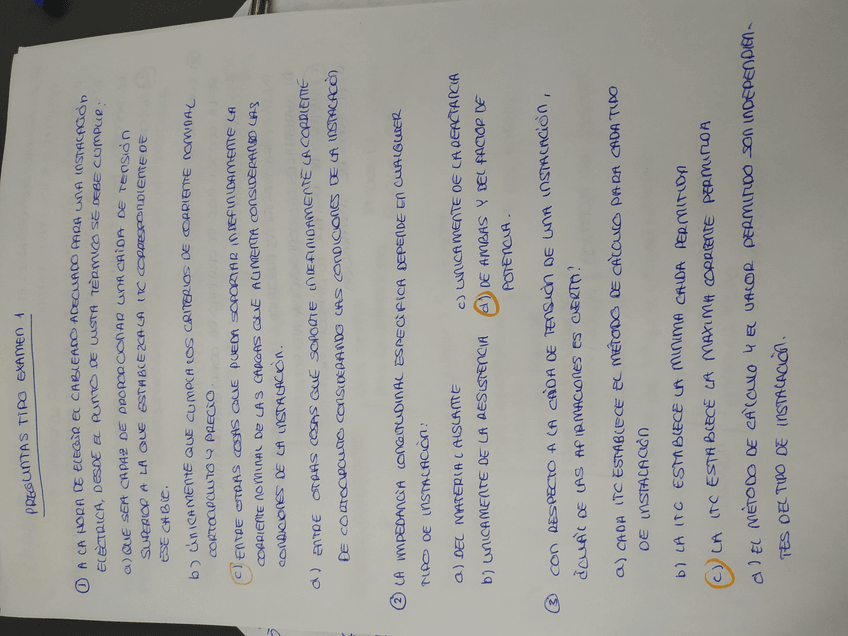 PREGUNTAS TIPO EXAMEN 1
① A LA HORA DE ELEGIR EL CABLEADO ADECUADO PARA UNA INSTALACIÓN
ELÉCTRICA, DESDE EL PUNTO DE VISTA TÉRMICO SE DEBE CUMPLIR:
a) QUE SEA CAPAZ DE PROPORCIONAR UNA CAÍDA DE TENSIÓN
SUPERIOR A LA QUE ESTABLEZCA LA ITC CORRESPONDIENTE DE
ESE CABLE.
b) ÚNICAMENTE QUE CUMPLA LOS CRITERIOS DE CORRIENTE NOMINAL
CORTOCIRCUITO Y PRECIO.
c) ENTRE OTRAS COSAS QUE PUEDA SOPORTAR INDEFINIDAMENTE LA
CORRIENTE NOMINAL DE LAS CARGAS QUE ALIMENTA CONSIDERANDO LAS
CONDICIONES DE LA INSTALACIÓN.
d) ENTRE OTRAS COSAS QUE SOPORTE INDEFINIDAMENTE LA CORRIENTE
DE CORTOCIRCUITO CONSIDERANDO LAS CONDICIONES DE LA INSTALACIÓN
② LA IMPEDANCIA LONGITUDINAL ESPECÍFICA DEPENDE EN CUALQUIER
TIPO DE INSTALACIÓN:
a) DEL MATERIAL AISLANTE
b) UNICAMENTE DE LA RESISTENCIA
c) UNICAMENTE DE LA REACTANCIA
d) DE AMBAS Y DEL FACTOR DE
POTENCIA.
③ CON RESPECTO A LA CAÍDA DE TENSIÓN DE UNA INSTALACIÓN,
¿CUÁL DE LAS AFIRMACIONES ES CIERTA?
a) CADA ITC ESTABLECE EL MÉTODO DE CÁLCULO PARA CADA TIPO
DE INSTALACIÓN
b) LA ITC ESTABLECE LA MINIMA CAIDA PERMITIDA
c) LA ITC ESTABLECE LA MAXIMA CORRIENTE PERMITIDA
d) EL MÉTODO DE CÁLCULO Y EL VALOR PERMITIDO SON INDEPENDIEN-
TES DEL TIPO DE INSTALACIÓN.